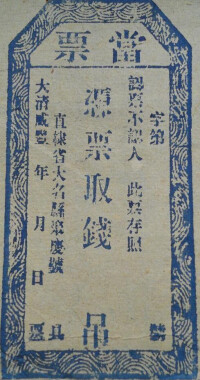 當票
字第
認票不認人 此票存照
憑票取錢 吊
直隸省大名縣聚慶號
大清咸豐 年 月 日
號
具